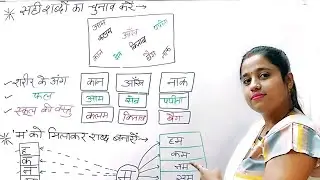 सही शब्दों का चुनाव करें→
आम आँख पपीता
कलम कान किताब
सेब बैग नाक
शरीर के अंग→ कान आँख नाक
फल→ आम सेब पपीता
स्कूल की वस्तु→ कलम किताब बैग
'म' को मिलाकर शब्द बनाएँ→
ह
क
न
हम
कम
नम
म